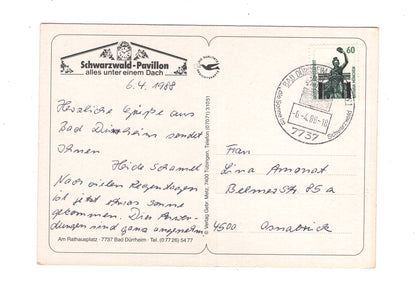 Schwarzwald-Pavillon
alles unter einem Dach
6.4.1988
Herzliche Grüße aus
Bad Dürrheim sendet
Ihnen
Heide
Nach vielen Regentagen
ist jetzt etwas Sonne
gekommen. Die
sind ganz angenehm
Am Rathausplatz · 7737 Bad Dürrheim · Tel. (0 77 26) 54 77
© Verlag Gebr. Metz, 7400 Tübingen, Telefon (07071) 31051
60
BAD DÜRRHEIM
-6.-4.88-18
7737
Schwarzwald
Frau
Lina Amonat
Belmerstr. 85 a
4500 Osnabrück